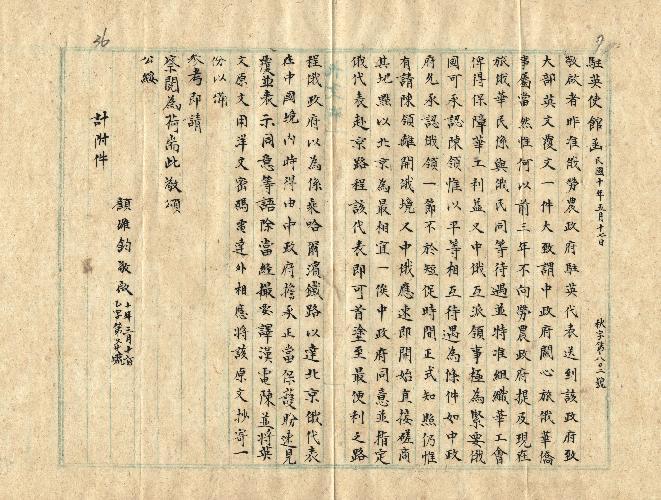 7
駐英使館函 民國十年五月十七日 秋字第八〇二號
敬啟者昨准俄勞農政府駐英代表送到該政府致
大部英文覆文一件大致謂中政府關心旅俄華僑
事屬當然惟何以前三年不向勞農政府提及現在
旅俄華民係與俄民同等待遇並特准組織華工會
俾得保障華工利益又中俄互派領事極為緊要俄
國可承認陳領惟以平等相互待遇為條件如中政
府允承認俄領一節不於短促時間正式知照仍惟
有請陳領離開俄境又中俄應速即開始直接磋商
其地點以北京為最相宜一俟中政府同意並指定
俄代表赴京路程該代表即可首塗至最便利之路
程俄政府以為係乘哈爾濱鐵路以達北京俄代表
在中國境內時得由中政府擔承正當保護盼速見
覆並表示同意等語除當經撮要譯漢電陳並將英
文原文用洋文密碼電達外相應將該原文抄寄一
份以備
參考即請
察閱為荷耑此敬頌
公綏
顧維鈞敬啟 十年三月十八日
計附件
36